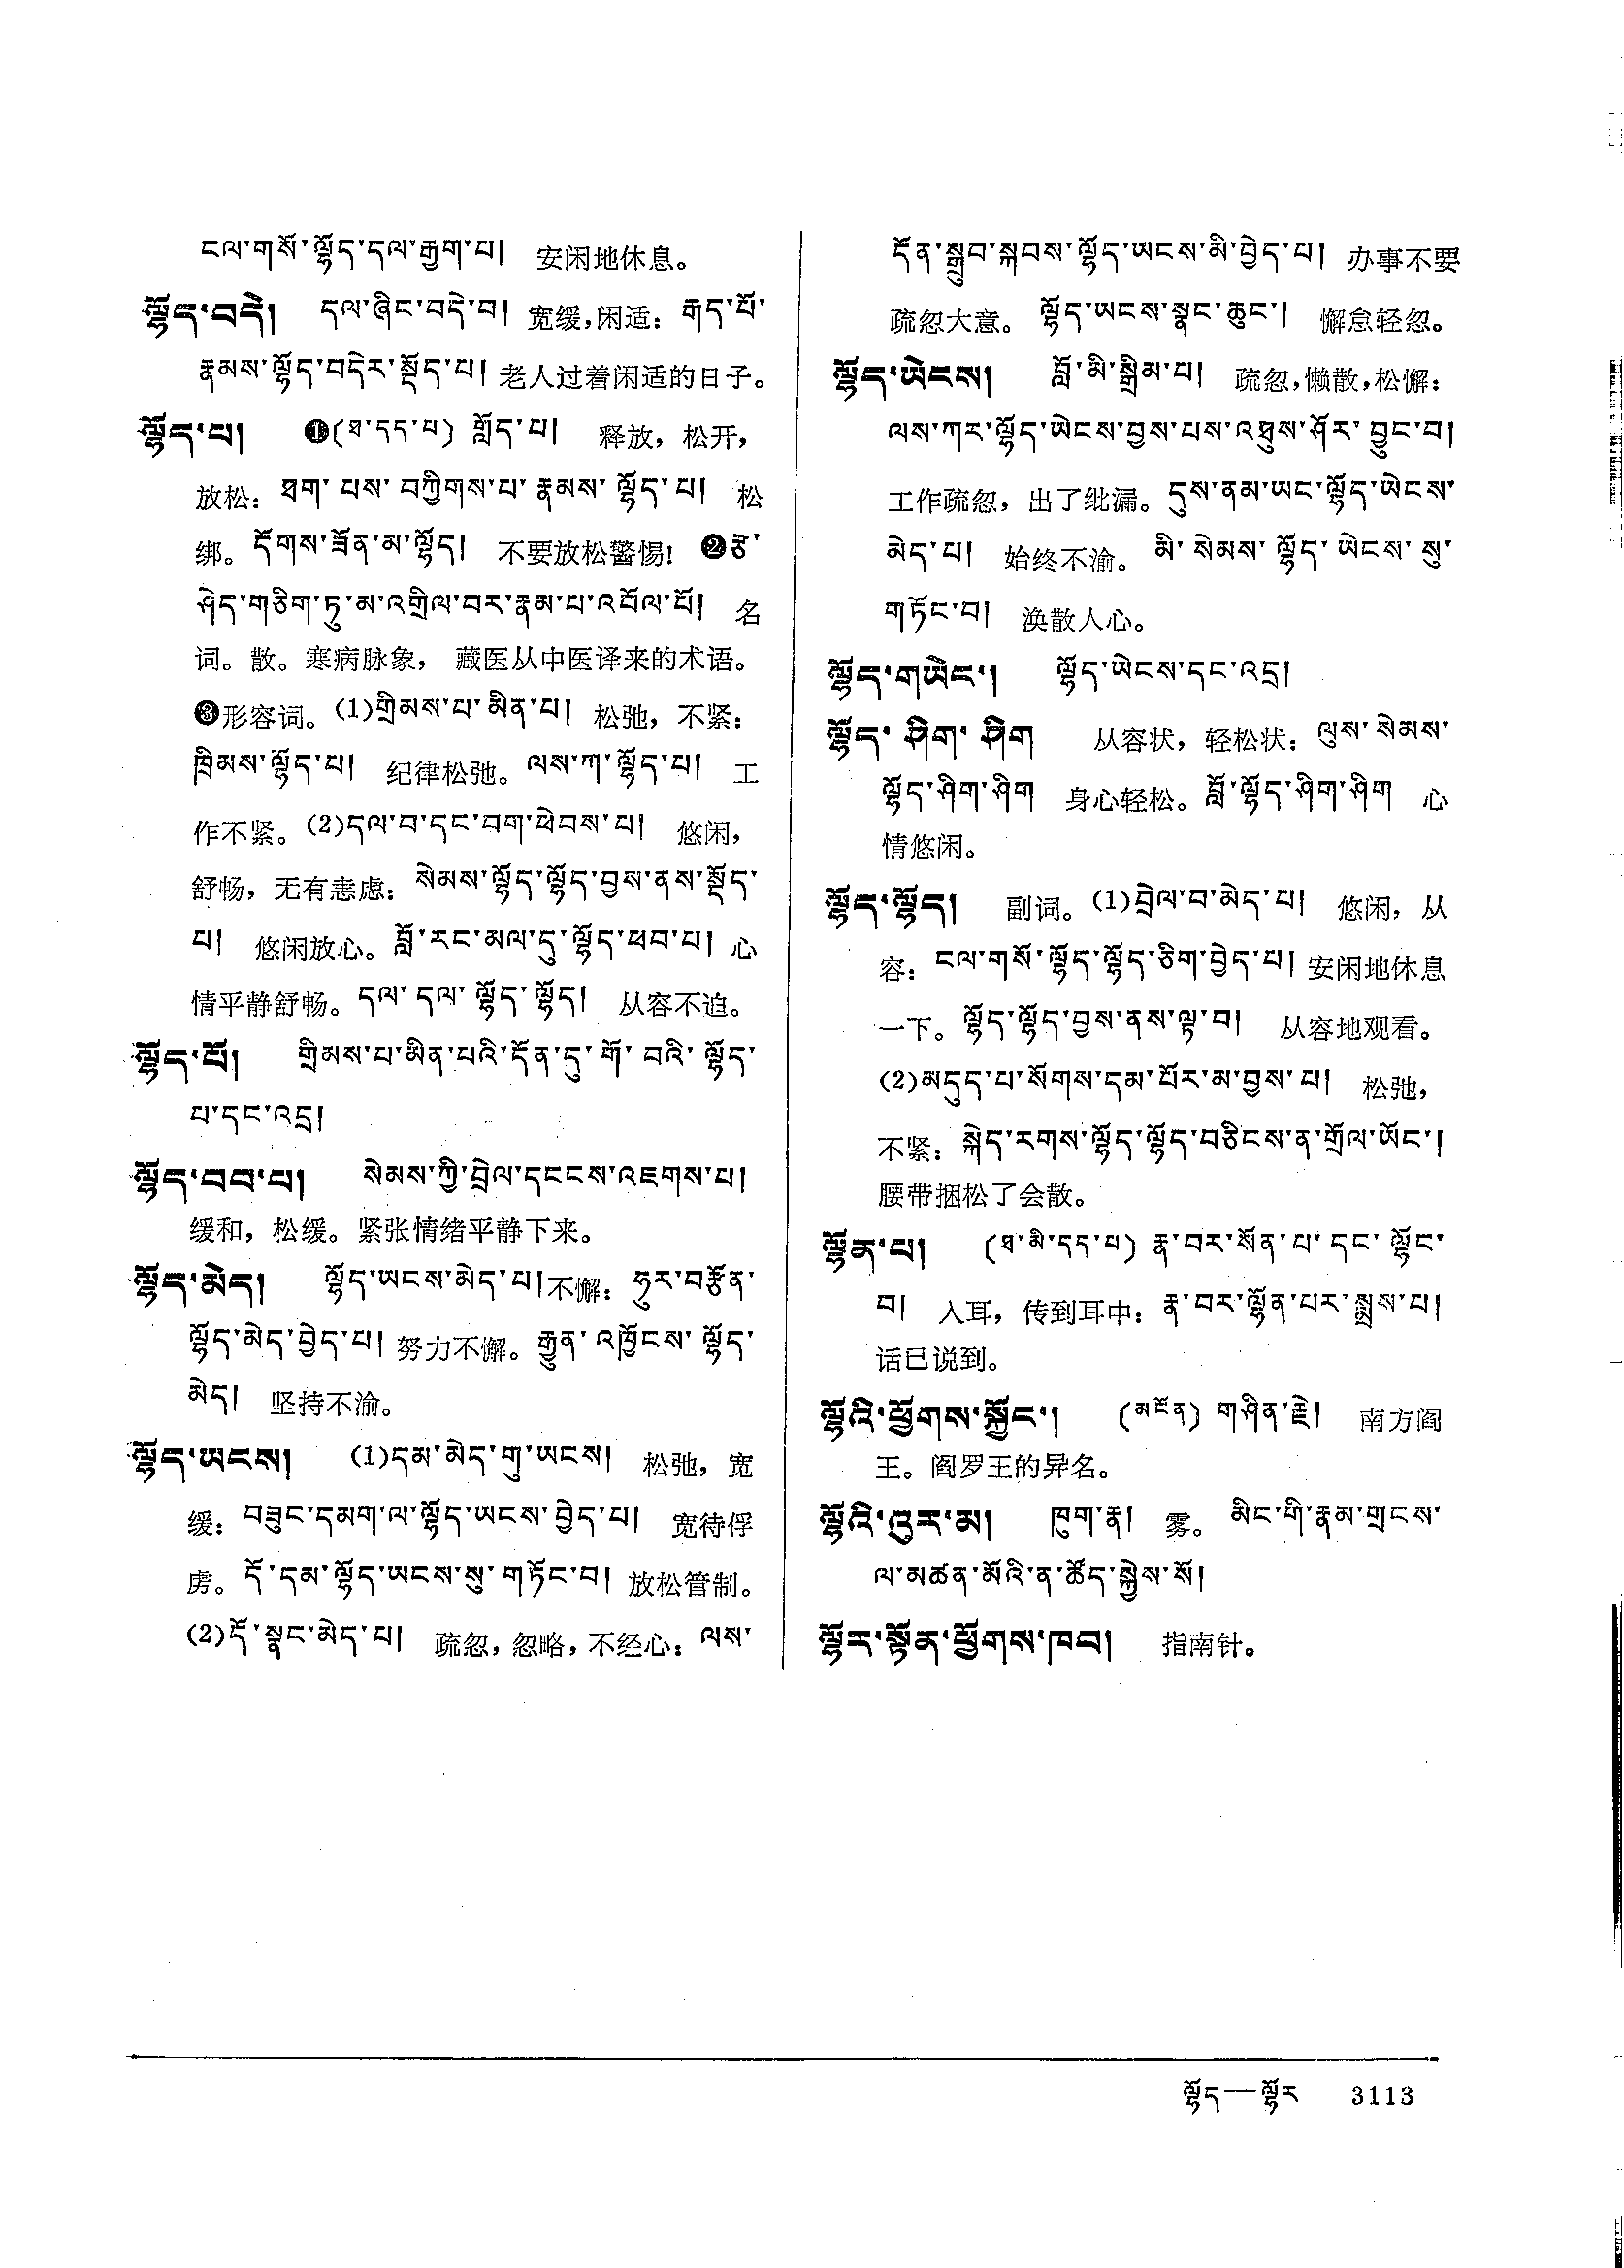 ངལ་གསོ་ལྷོད་དལ་རྒྱག་པ། 安闲地休息。
ལྷོད་བདེ། དལ་ཞིང་བདེ་བ། 宽缓,闲适：རྒད་པོ་
རྣམས་ལྷོད་བདེར་སྡོད་པ། 老人过着闲适的日子。
ལྷོད་པ། ❶(ཐ་དད་པ) གློད་པ། 释放，松开，
放松：ཐག་པས་བཀྱིགས་པ་རྣམས་ལྷོད་པ། 松
绑。དོགས་ཟོན་མ་ལྷོད། 不要放松警惕! ❷རྩ་
ཤེད་གཅིག་ཏུ་མ་འགྲིལ་བར་རྣམ་པ་འབོལ་པོ། 名
词。散。寒病脉象，藏医从中医译来的术语。
❸形容词。(1)གྲིམས་པ་མིན་པ། 松弛，不紧：
ཁྲིམས་ལྷོད་པ། 纪律松弛。ལས་ཀ་ལྷོད་པ། 工
作不紧。(2)དལ་བ་དང་བག་ཕེབས་པ། 悠闲，
舒畅，无有恚虑：སེམས་ལྷོད་ལྷོད་བྱས་ནས་སྡོད་
པ། 悠闲放心。བློ་རང་མལ་དུ་ལྷོད་ཕབ་པ། 心
情平静舒畅。དལ་དལ་ལྷོད་ལྷོད། 从容不迫。
ལྷོད་པོ། གྲིམས་པ་མིན་པའི་དོན་དུ་གོ་བའི་ལྷོད་
པ་དང་འདྲ།
ལྷོད་བབ་པ། སེམས་ཀྱི་བྲེལ་དངངས་འཇགས་པ།
缓和，松缓。紧张情绪平静下来。
ལྷོད་མེད། ལྷོད་ཡངས་མེད་པ། 不懈：ཧུར་བརྩོན་
ལྷོད་མེད་བྱེད་པ། 努力不懈。རྒྱུན་འཁྱོངས་ལྷོད་
མེད། 坚持不渝。
ལྷོད་ཡངས། (1)དམ་མེད་གུ་ཡངས། 松弛，宽
缓：བཟུང་དམག་ལ་ལྷོད་ཡངས་བྱེད་པ། 宽待俘
虏。དོ་དམ་ལྷོད་ཡངས་སུ་གཏོང་བ། 放松管制。
(2)དོ་སྣང་མེད་པ། 疏忽,忽略,不经心：ལས་
དོན་སྒྲུབ་སྐབས་ལྷོད་ཡངས་མི་བྱེད་པ། 办事不要
疏忽大意。ལྷོད་ཡངས་སྣང་ཆུང་། 懈怠轻忽。
ལྷོད་ཡེངས། བློ་མི་སྒྲིམ་པ། 疏忽,懒散,松懈：
ལས་ཀར་ལྷོད་ཡེངས་བྱས་པས་འཐུས་ཤོར་བྱུང་བ།
工作疏忽，出了纰漏。དུས་ནམ་ཡང་ལྷོད་ཡེངས་
མེད་པ། 始终不渝。མི་སེམས་ལྷོད་ཡེངས་སུ་
གཏོང་བ། 涣散人心。
ལྷོད་གཡེང་། ལྷོད་ཡེངས་དང་འདྲ།
ལྷོད་ཤིག་ཤིག 从容状，轻松状：ལུས་སེམས་
ལྷོད་ཤིག་ཤིག 身心轻松。བློ་ལྷོད་ཤིག་ཤིག 心
情悠闲。
ལྷོད་ལྷོད། 副词。(1)བྲེལ་བ་མེད་པ། 悠闲，从
容：ངལ་གསོ་ལྷོད་ལྷོད་ཅིག་བྱེད་པ། 安闲地休息
一下。ལྷོད་ལྷོད་བྱས་ནས་ལྟ་བ། 从容地观看。
(2)མདུད་པ་སོགས་དམ་པོར་མ་བྱས་པ། 松弛，
不紧：སྐེད་རགས་ལྷོད་ལྷོད་བཅིངས་ན་གྲོལ་ཡོང་།
腰带捆松了会散。
ལྷོན་པ། (ཐ་མི་དད་པ) རྣ་བར་སོན་པ་དང་ལྷོང་
བ། 入耳，传到耳中：རྣ་བར་ལྷོན་པར་སྨྲས་པ།
话已说到。
ལྷོའི་ཕྱོགས་སྐྱོང་། (མངོན) གཤིན་རྗེ། 南方阎
王。阎罗王的异名。
ལྷོའི་འུར་མ། ཁུག་རྣ། 雾。མིང་གི་རྣམ་གྲངས་
ལ་མཚན་མོའི་ན་ཚོད་སྐྱེས་སོ།
ལྷོར་སྟོན་ཕྱོགས་ཁབ། 指南针。
ལྷོད—ལྷོར 3113